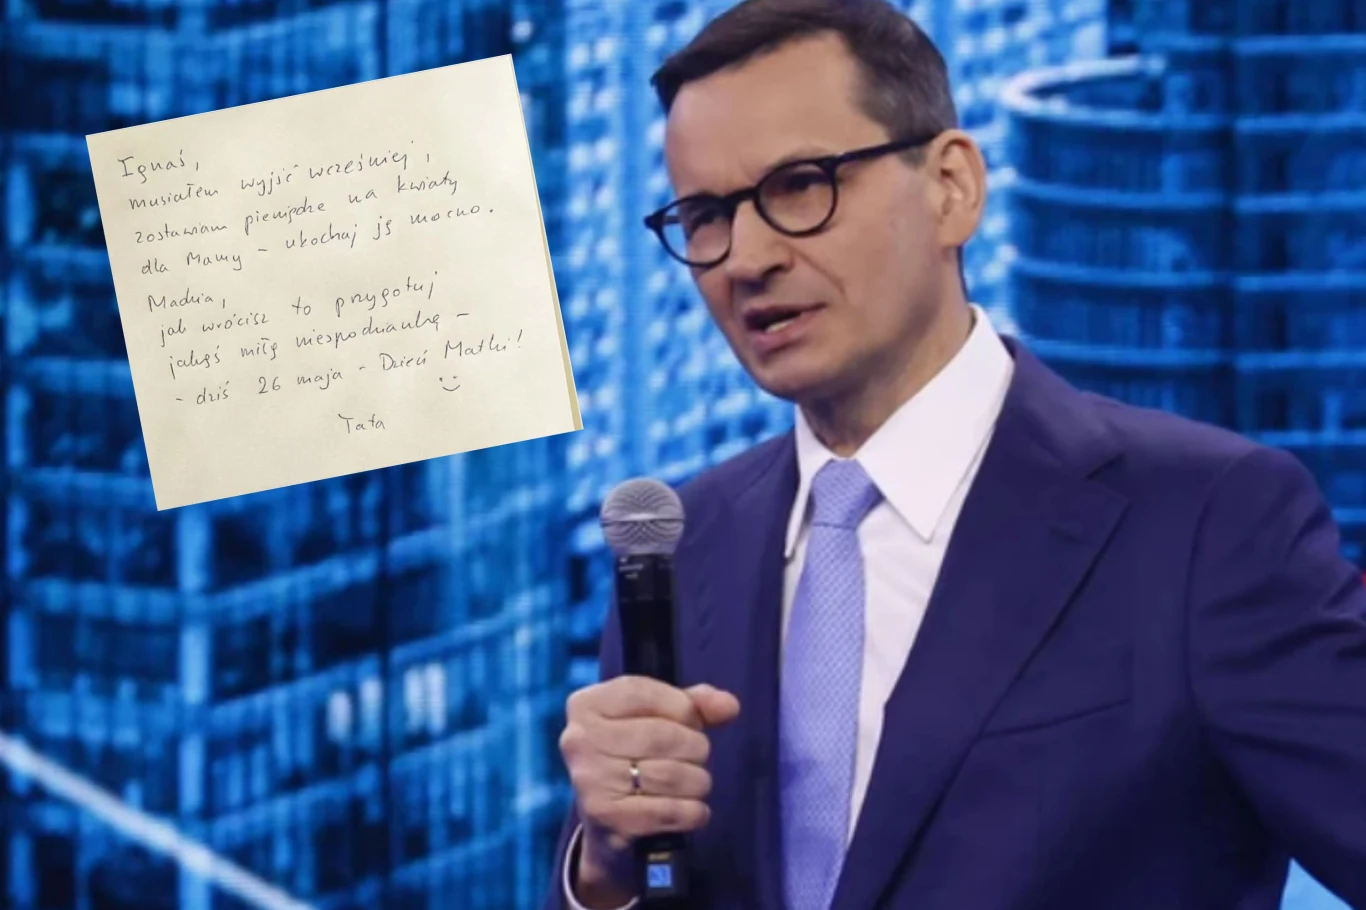 Ignaś,
musiałem wyjść wcześniej,
zostawiam pieniądze na kwiaty
dla Mamy – ukochaj ją mocno.
Madzia,
jak wrócisz to przygotuj
jakąś miłą niespodziankę –
- dziś 26 maja - Dzień Matki!
Tata